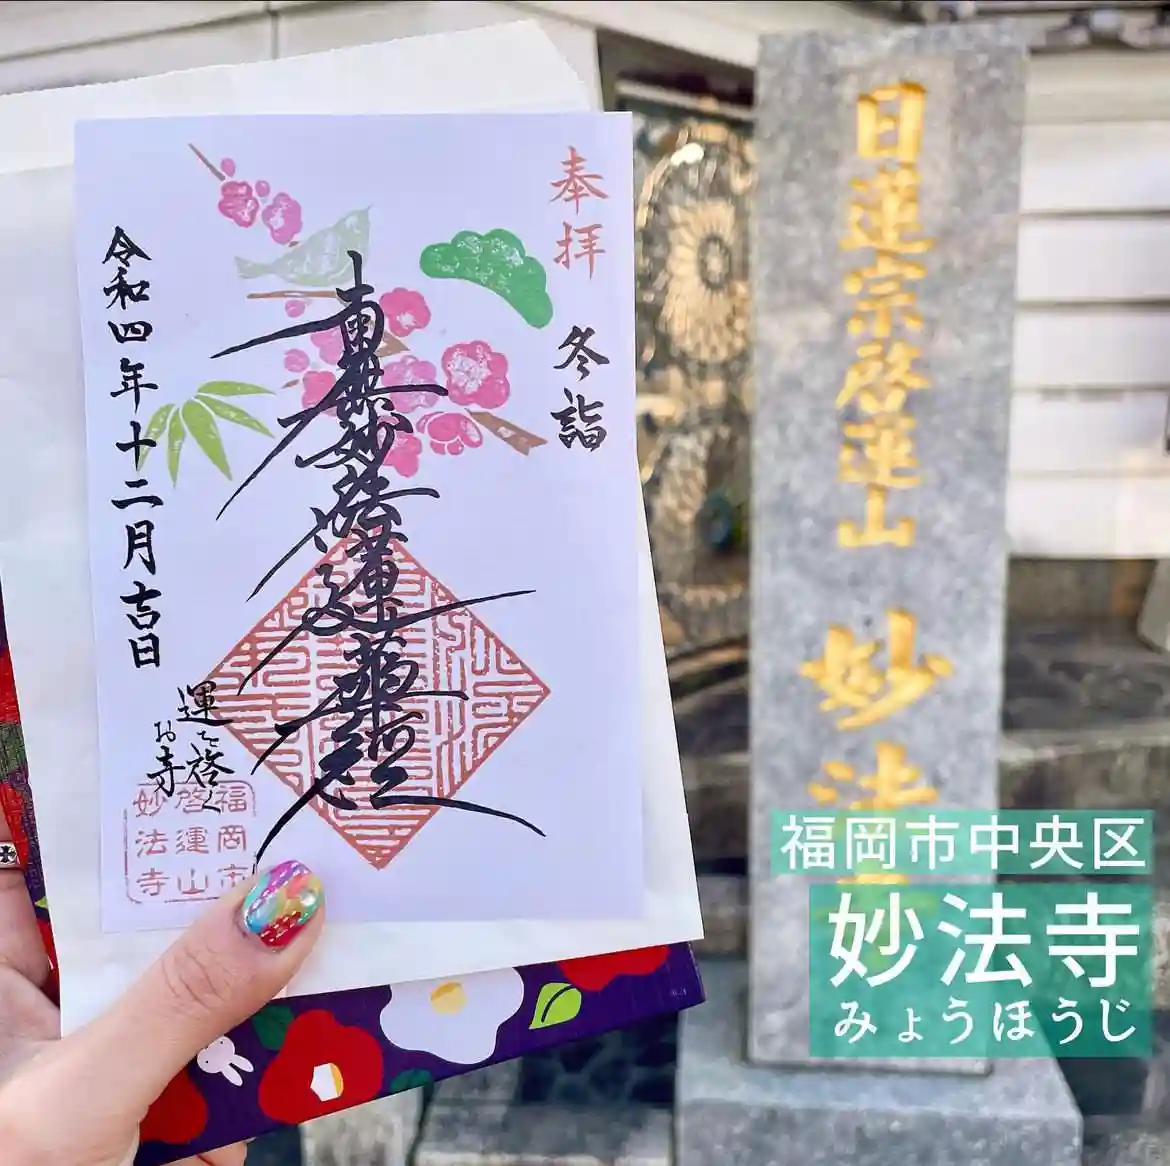 奉拝
冬詣
南無妙法蓮華経
令和四年十二月吉日
運を啓く
お寺
福岡市
啓運山
妙法寺
日蓮宗啓運山 妙法
福岡市中央区
妙法寺
みょうほうじ